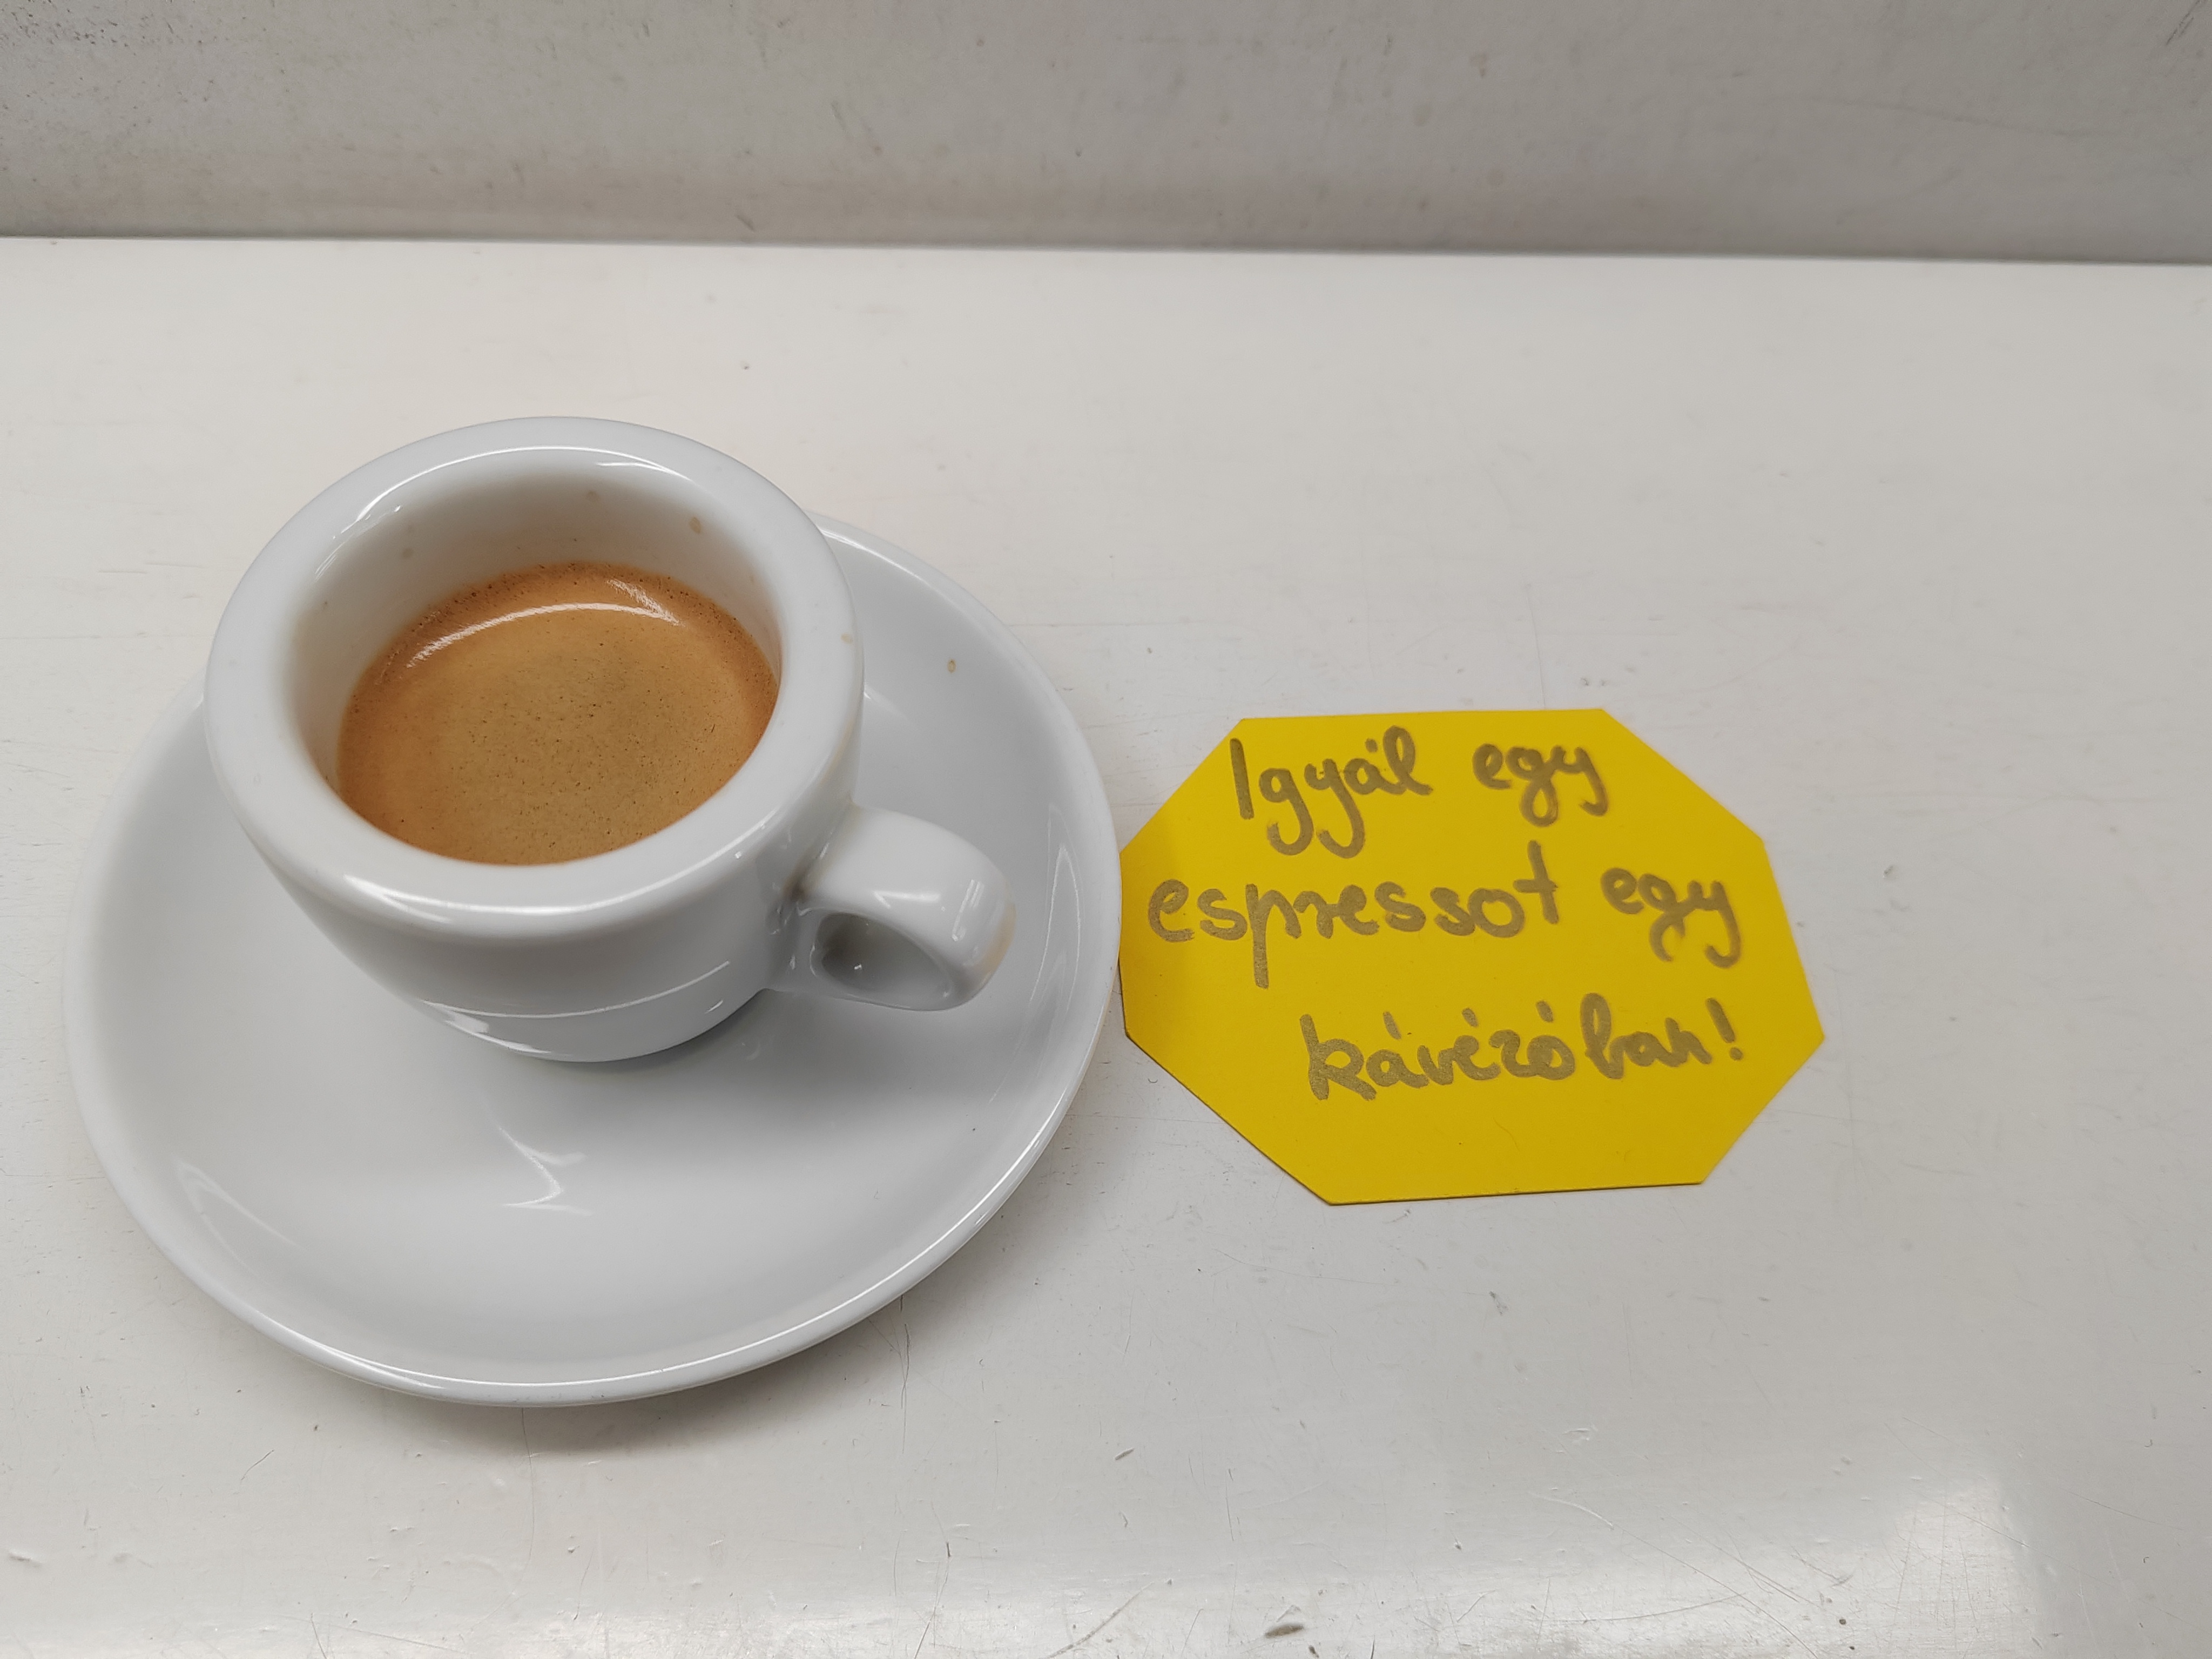 Igyál egy
espressot egy
kávézóban!